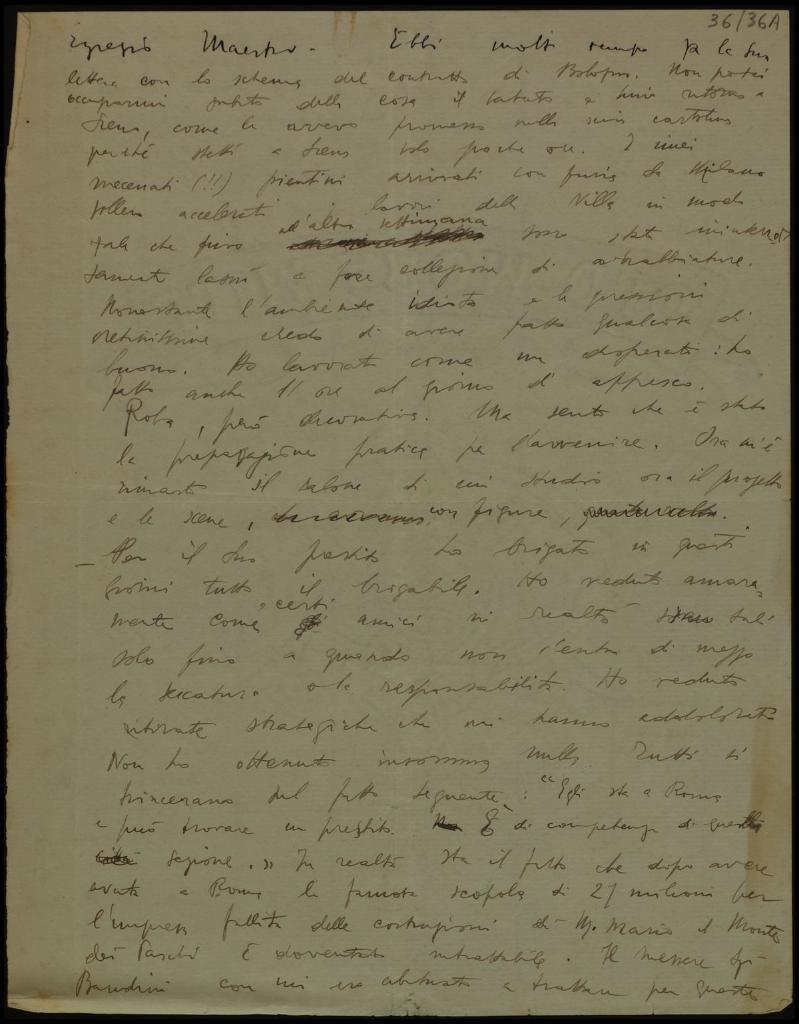 36/36A
Egregio Maestro - Ebbi molto tempo fa la Sua
lettera con lo schema del contratto di Bologna. Non potei
occuparmi subito della cosa il sabato a mio ritorno a
Siena, come le avevo promesso nella mia cartolina
perché stetti a Siena solo poche ore. I miei
mecenati (!!!) pientini arrivati con furia da Milano
vollero accelerati i lavori della Villa in modo
tale che fino all'altra settimana sono stato
lassù a fare collezione di arrabbiature.
Nonostante l'ambiente idiota e le pressioni
cretinissime credo di avere fatto qualcosa di
buono. Ho lavorato come un disperato: ho
fatto anche 11 ore al giorno d'affresco.
Roba, però decorativa. Ma sento che è stata
la preparazione pratica per l'avvenire. Ora m'è
rimasto il salone di cui studio ora il progetto
e le scene, con figure,
- Per il Suo prestito ho brigato in questi
giorni tutto il brigabile. Ho veduto amara-
mente come "certi" amici in realtà siano tali
solo fino a quando non c'entri di mezzo
la seccatura o la responsabilità. Ho veduto
ritirate strategiche che mi hanno addolorato
Non ho ottenuto insomma nulla. Tutti si
trincerano sul fatto seguente: "Egli sta a Roma
e può trovare un prestito. È di competenza di quella
sezione." In realtà sta il fatto che dopo avere
avuta a Roma la famosa scopola di 27 milioni per
l'impresa fallita delle costruzioni di M. Mario il Monte
dei Paschi è doventato intrattabile. Il messere
Bandini con cui ero abituato a trattare per queste